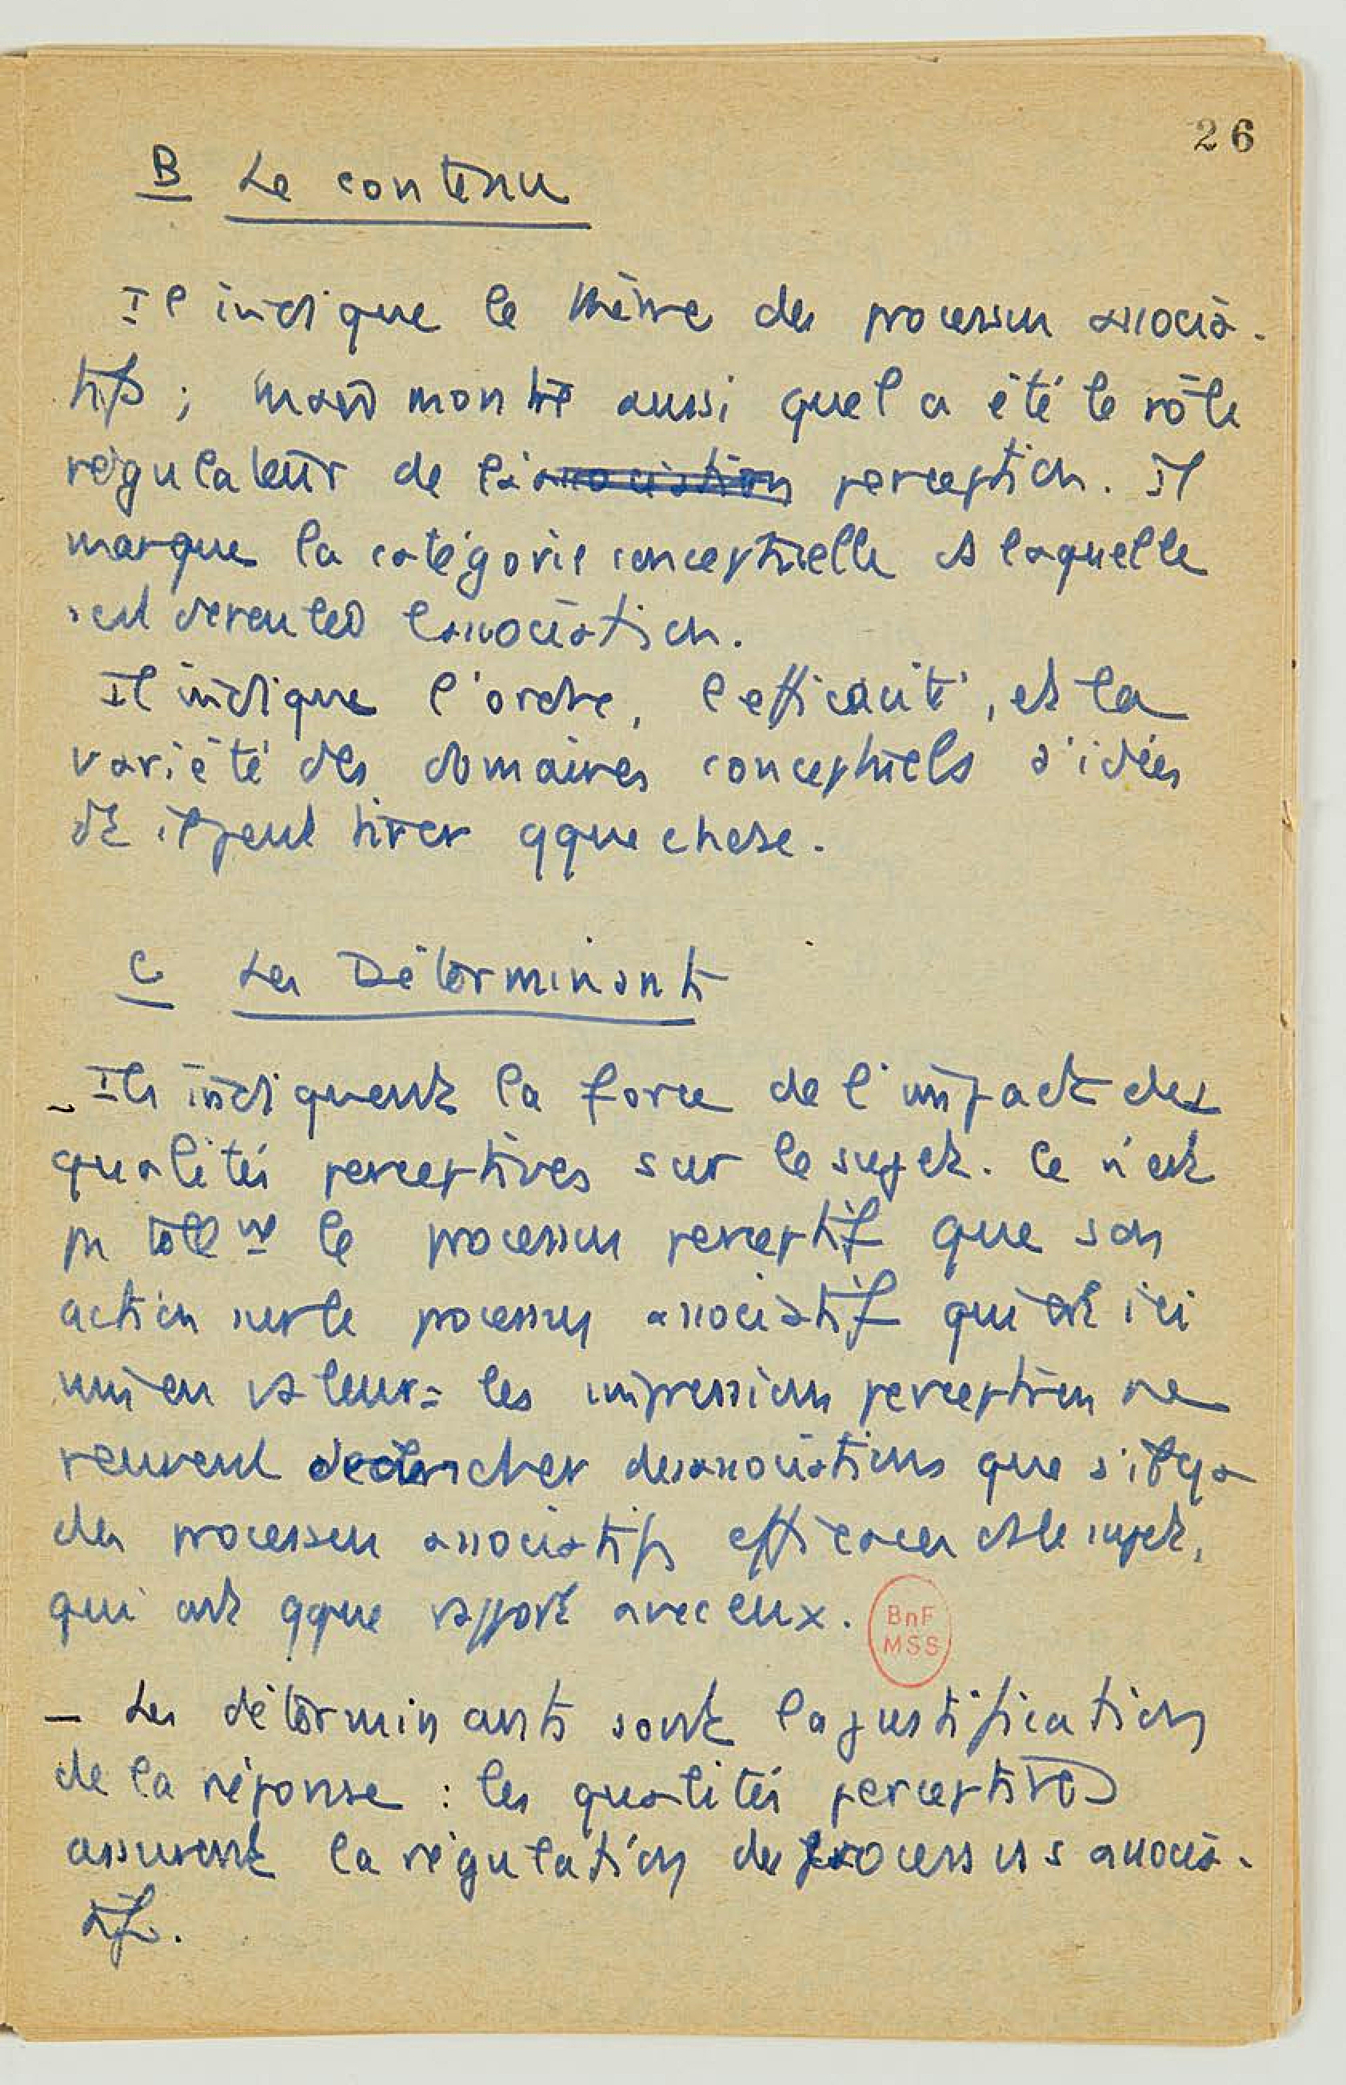 26
B Le contenu
Il indique le thème des processus associa-
tifs ; mais montre aussi quel a été le rôle
régulateur de l'association perception. Il
marque la catégorie conceptuelle ds laquelle
s'est déroulée l'association.
Il indique l'ordre, l'efficacité, et la
variété des domaines conceptuels d'idées
dt il peut tirer qque chose.
C Les Déterminants
- Ils indiquent la force de l'impact des
qualités perceptives sur le sujet. Ce n'est
pas tellmt le processus perceptif que son
action sur le processus associatif qui est ici
mis en valeur = les impressions perceptives ne
peuvent déclencher des associations que s'il y a
des processus associatifs efficaces ds le sujet,
qui ont qque rapport avec eux.
BnF
MSS
- Les déterminants sont la justification
de la réponse : les qualités perceptives
assurent la régulation des processus associa-
tifs.